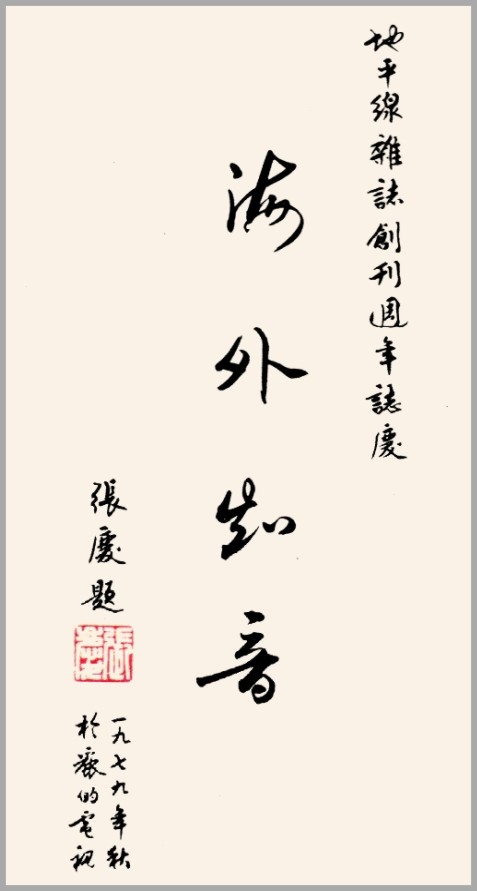 地平線雜誌創刊週年誌慶
海外知音
張慶題
張慶
一九七九年秋
於麗的電視